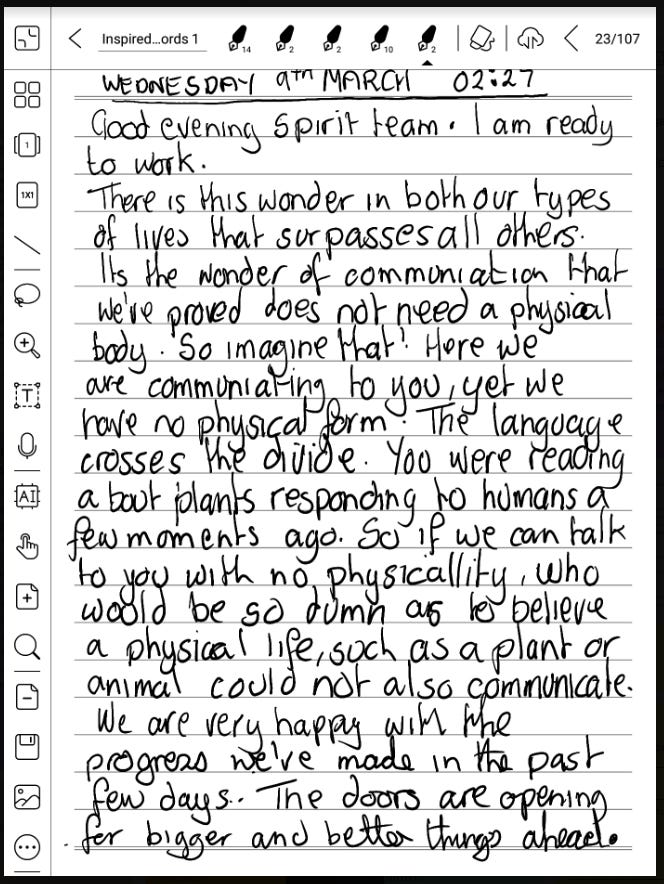 Inspired...ords 1
14
2
2
10
2
23/107
1
1X1
T
AI
WEDNESDAY 9th MARCH 02:27
Good evening Spirit team. I am ready
to work.
There is this wonder in both our types
of lives that surpasses all others.
Its the wonder of communiation that
we've proved does not need a physical
body. So imagine that! Here we
are communiating to you, yet we
have no physical form. The language
crosses the divide. You were reading
about plants responding to humans a
few moments ago. So if we can talk
to you with no physicallity, who
would be so dumn as to believe
a physical life, such as a plant or
animal could not also communicate.
We are very happy with the
progress we've made in the past
few days.. The doors are opening
for bigger and better things ahead.